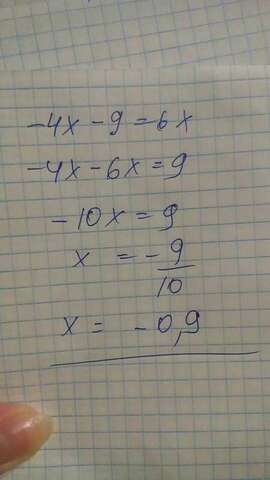 -4x - 9 = 6x
-4x - 6x = 9
-10x = 9
x = - 9/10
x = -0,9